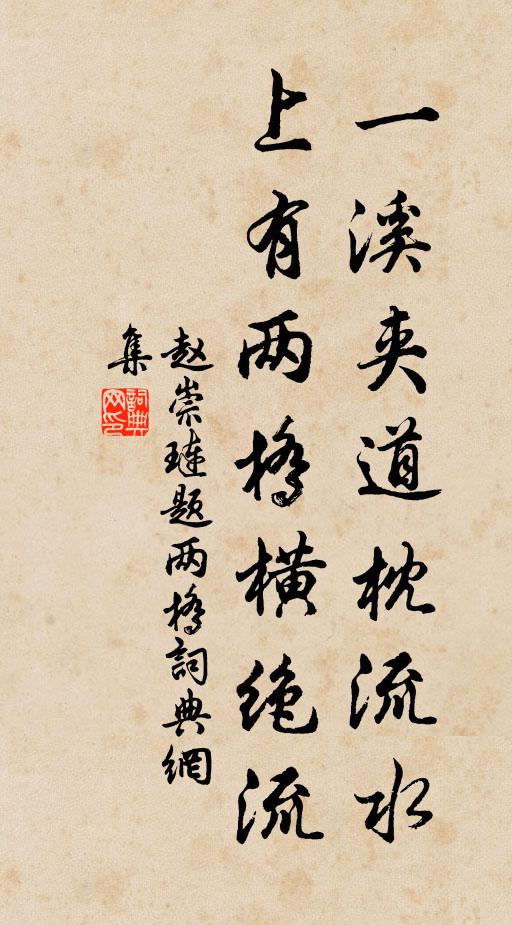 一溪夹道枕流水
上有两桥横绝流
赵崇琏题两桥詞典網
集
詞典
网印